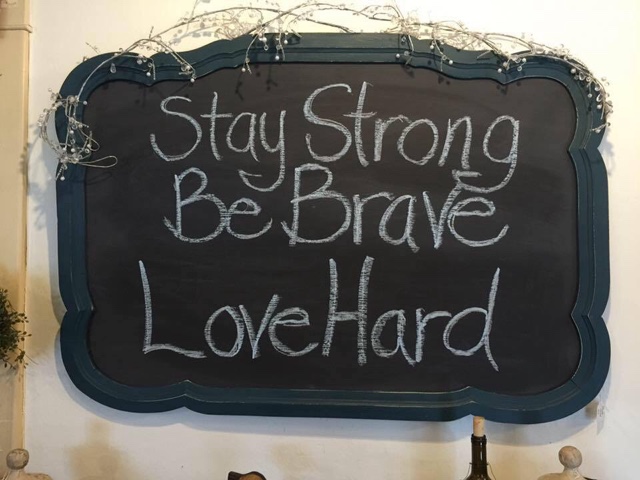 Stay Strong
Be Brave
Love Hard